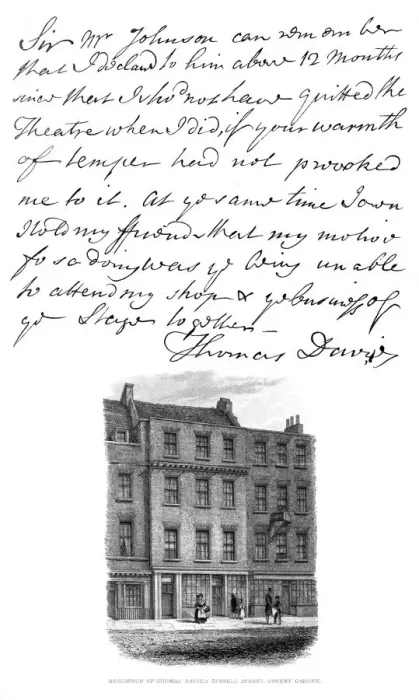 Sir Mr Johnson can remember
that I declard to him above 12 Months
since that I shod not have quitted the
Theatre when I did, if your warmth
of temper had not provoked
me to it. At ye same time I own
I told my ffriends that my motive
for so doing was ye being unable
to attend my shop & ye business of
ye Stage together—
Thomas Davies
RESIDENCE OF THOMAS DAVIES RUSSELL STREET, COVENT GARDEN.